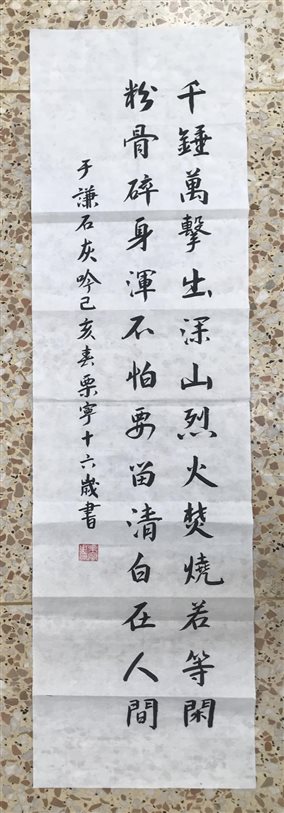 千錘萬擊出深山烈火焚燒若等閑
粉骨碎身渾不怕要留清白在人間
于謙石灰吟己亥春栗寧十六歲書